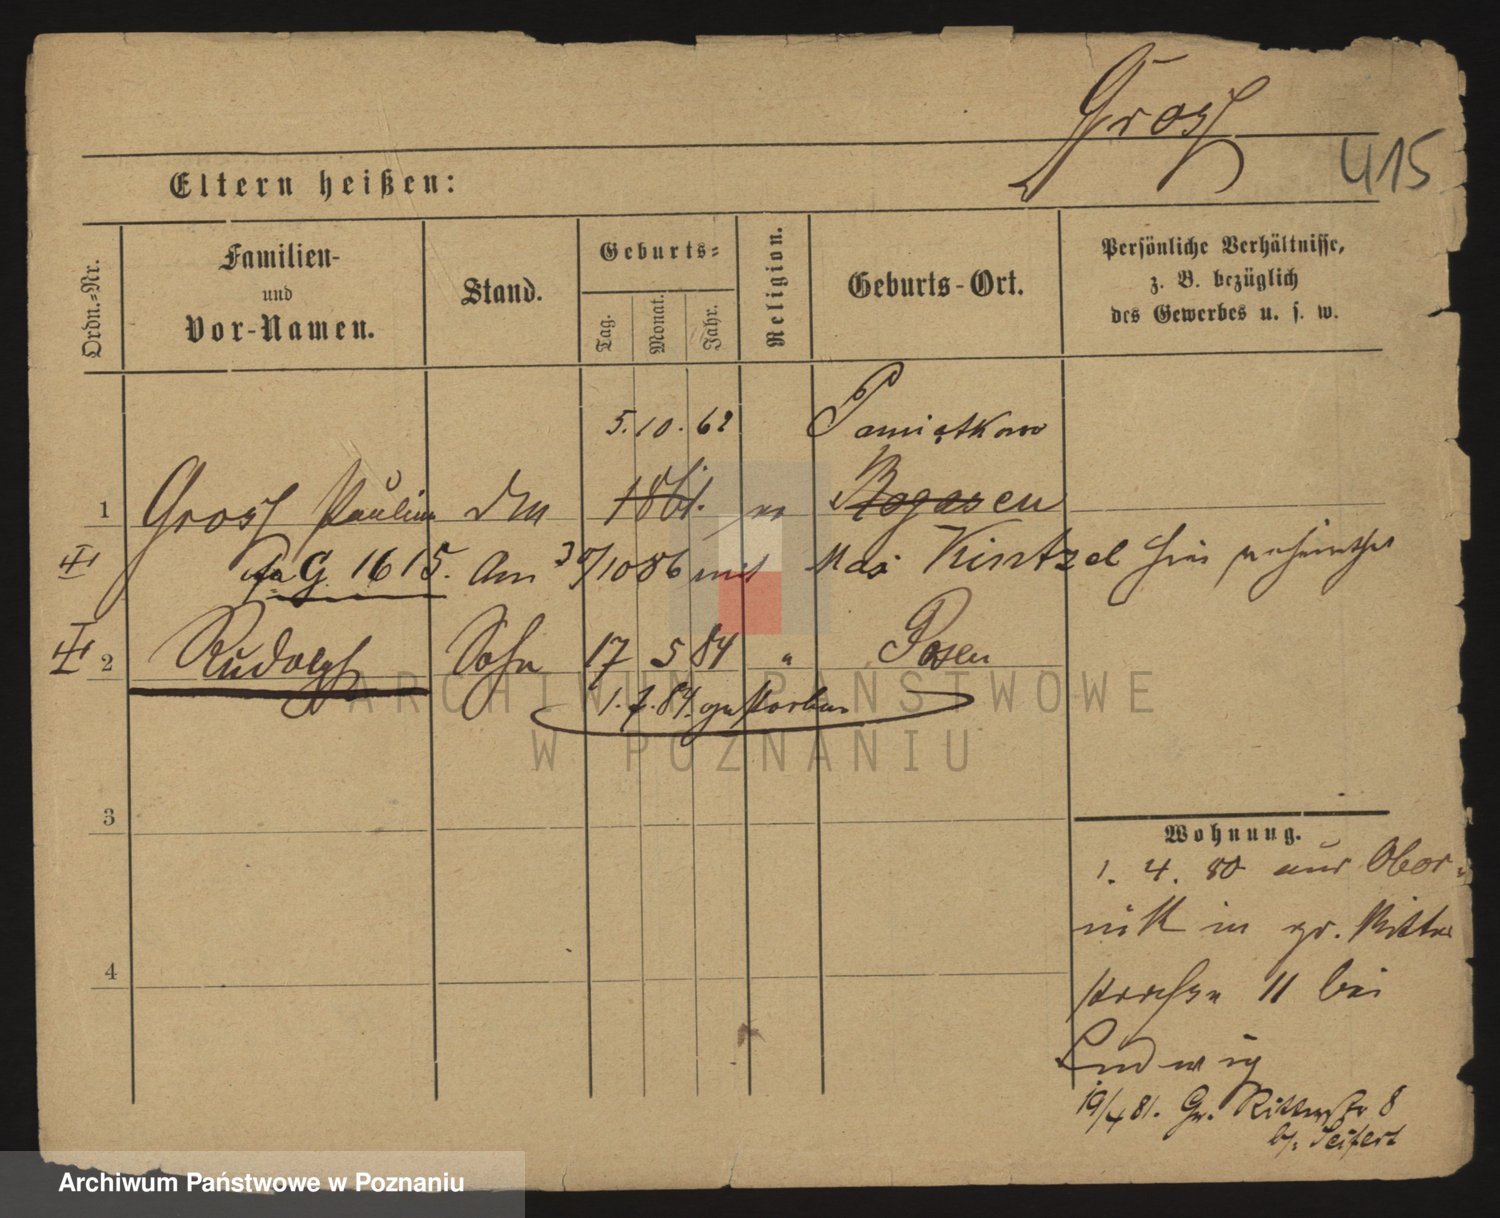 Grosz
415
Eltern heißen:
Ordn.=Nr.
Familien-
und
Vor-Namen.
Stand.
Geburts=
Tag.
Monat.
Jahr.
Religion.
Geburts-Ort.
Persönliche Verhältnisse,
z. B. bezüglich
des Gewerbes u. s. w.
5. 10. 62 Pamiątkowo
1 Grosz Pauline 1861. Rogasen
III G 1615. Am 30/10 86 mit Max Kintzel hier verheirathet
III 2 Rudolph Sohn 17 5 84 " Posen
1. 7. 84. gestorben
3
4
Wohnung.
1. 4. 80 aus Obor-
nik in gr. Ritter
strasse 11 bei
Ludwig
19/4 81. Gr. Ritterstr 8
b/. Seifert
ARCHIWUM PAŃSTWOWE
W POZNANIU
Archiwum Państwowe w Poznaniu